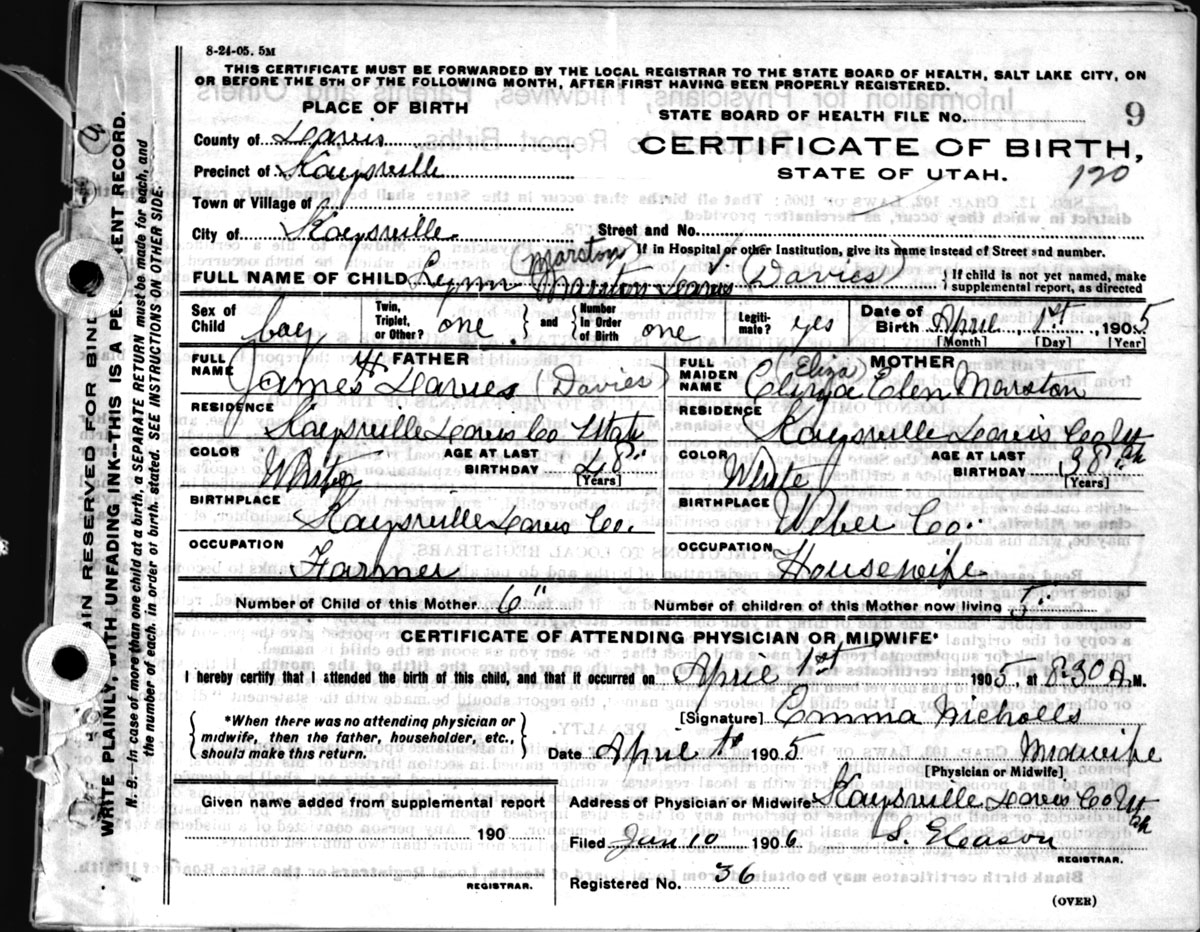 8-24-05. 5M
THIS CERTIFICATE MUST BE FORWARDED BY THE LOCAL REGISTRAR TO THE STATE BOARD OF HEALTH, SALT LAKE CITY, ON
OR BEFORE THE 5TH OF THE FOLLOWING MONTH, AFTER FIRST HAVING BEEN PROPERLY REGISTERED.
PLACE OF BIRTH
STATE BOARD OF HEALTH FILE NO. 9
County of Davis
CERTIFICATE OF BIRTH,
Precinct of Kaysville
STATE OF UTAH.
120
Town or Village of
City of Kaysville
Street and No.
(Marston) If in Hospital or other Institution, give its name instead of Street and number.
FULL NAME OF CHILD Lynn Marston Davis (Davies) { If child is not yet named, make
supplemental report, as directed
Sex of Child boy Twin, Triplet, or Other? one } and { Number In Order of Birth one Legiti-mate? yes Date of Birth April 1st, 1905
[Month] [Day] [Year]
FULL NAME FATHER James H Davies (Davies)
FULL MAIDEN NAME MOTHER (Eliza) Elen Marston
RESIDENCE Kaysville Davis Co Utah
RESIDENCE Kaysville Davis Co Utah
COLOR White AGE AT LAST BIRTHDAY 48 [Years]
COLOR White AGE AT LAST BIRTHDAY 38 [Years]
BIRTHPLACE Kaysville Davis Co.
BIRTHPLACE Weber Co.
OCCUPATION Farmer
OCCUPATION Housewife
Number of Child of this Mother 6"
Number of children of this Mother now living
CERTIFICATE OF ATTENDING PHYSICIAN OR MIDWIFE*
I hereby certify that I attended the birth of this child, and that it occurred on April 1st 1905, at 8.30 A.M.
{ *When there was no attending physician or
midwife, then the father, householder, etc.,
should make this return. }
[Signature] Emma Nicholls
Date April 1905 Midwife
[Physician or Midwife]
Given name added from supplemental report
190
REGISTRAR.
Address of Physician or Midwife Kaysville Davis Co Utah
Filed Jan 10 1906 S. Gleason
REGISTRAR.
Registered No. 36
(OVER)
WRITE PLAINLY, WITH UNFADING INK--THIS IS A PE ENT RECORD.
AIN RESERVED FOR BIND
N. B.--In case of more than one child at a birth, a SEPARATE RETURN must be made for each, and
the number of each, in order of birth, stated. SEE INSTRUCTIONS ON OTHER SIDE.